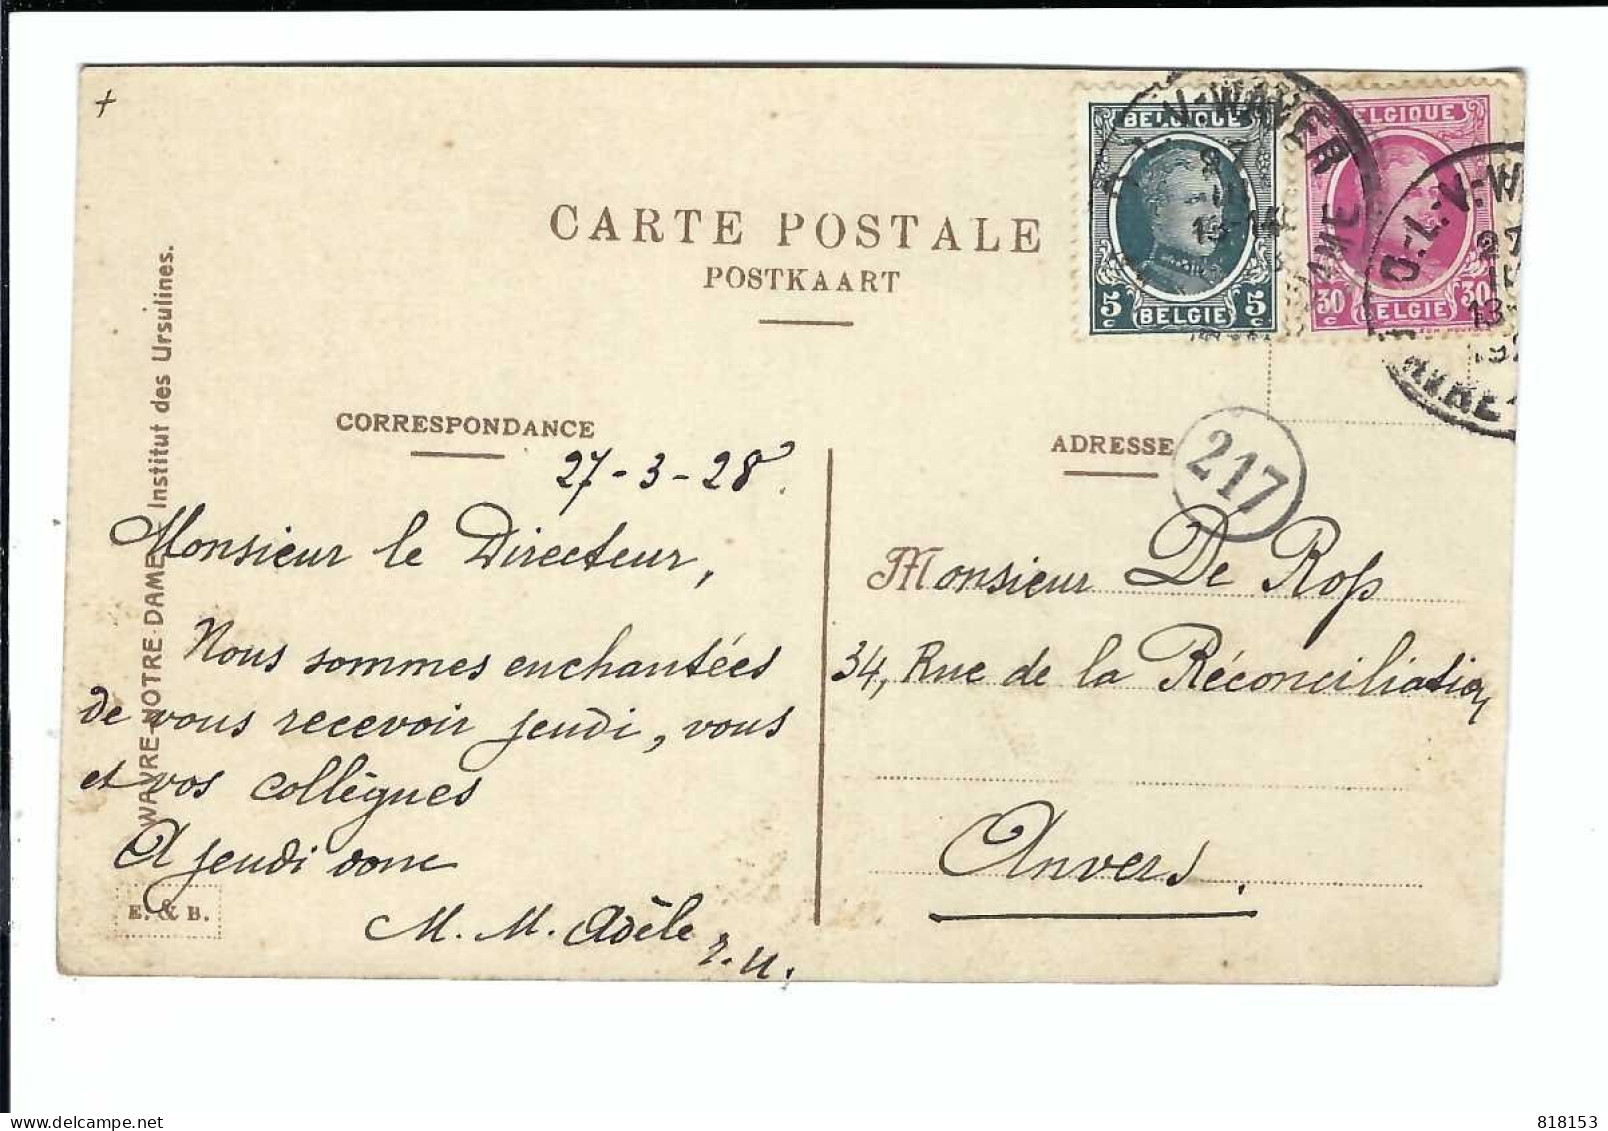 +
CARTE POSTALE
POSTKAART
BELGIQUE
5 c 5 c
BELGIE
BELGIQUE
30 c 30 c
BELGIE
O.-L.-V.-WAVER
27
13-14
O.-L.-V.-W
27
13-
CORRESPONDANCE
27-3-28.
Monsieur le Directeur,
Nous sommes enchantées
de vous recevoir jeudi, vous
et vos collègues
A jeudi donc
M. M. Adèle
r.u.
WAVRE-NOTRE-DAME Institut des Ursulines.
E. & B.
ADRESSE
217
Monsieur De Rop
34, Rue de la Réconciliation
Anvers.
818153